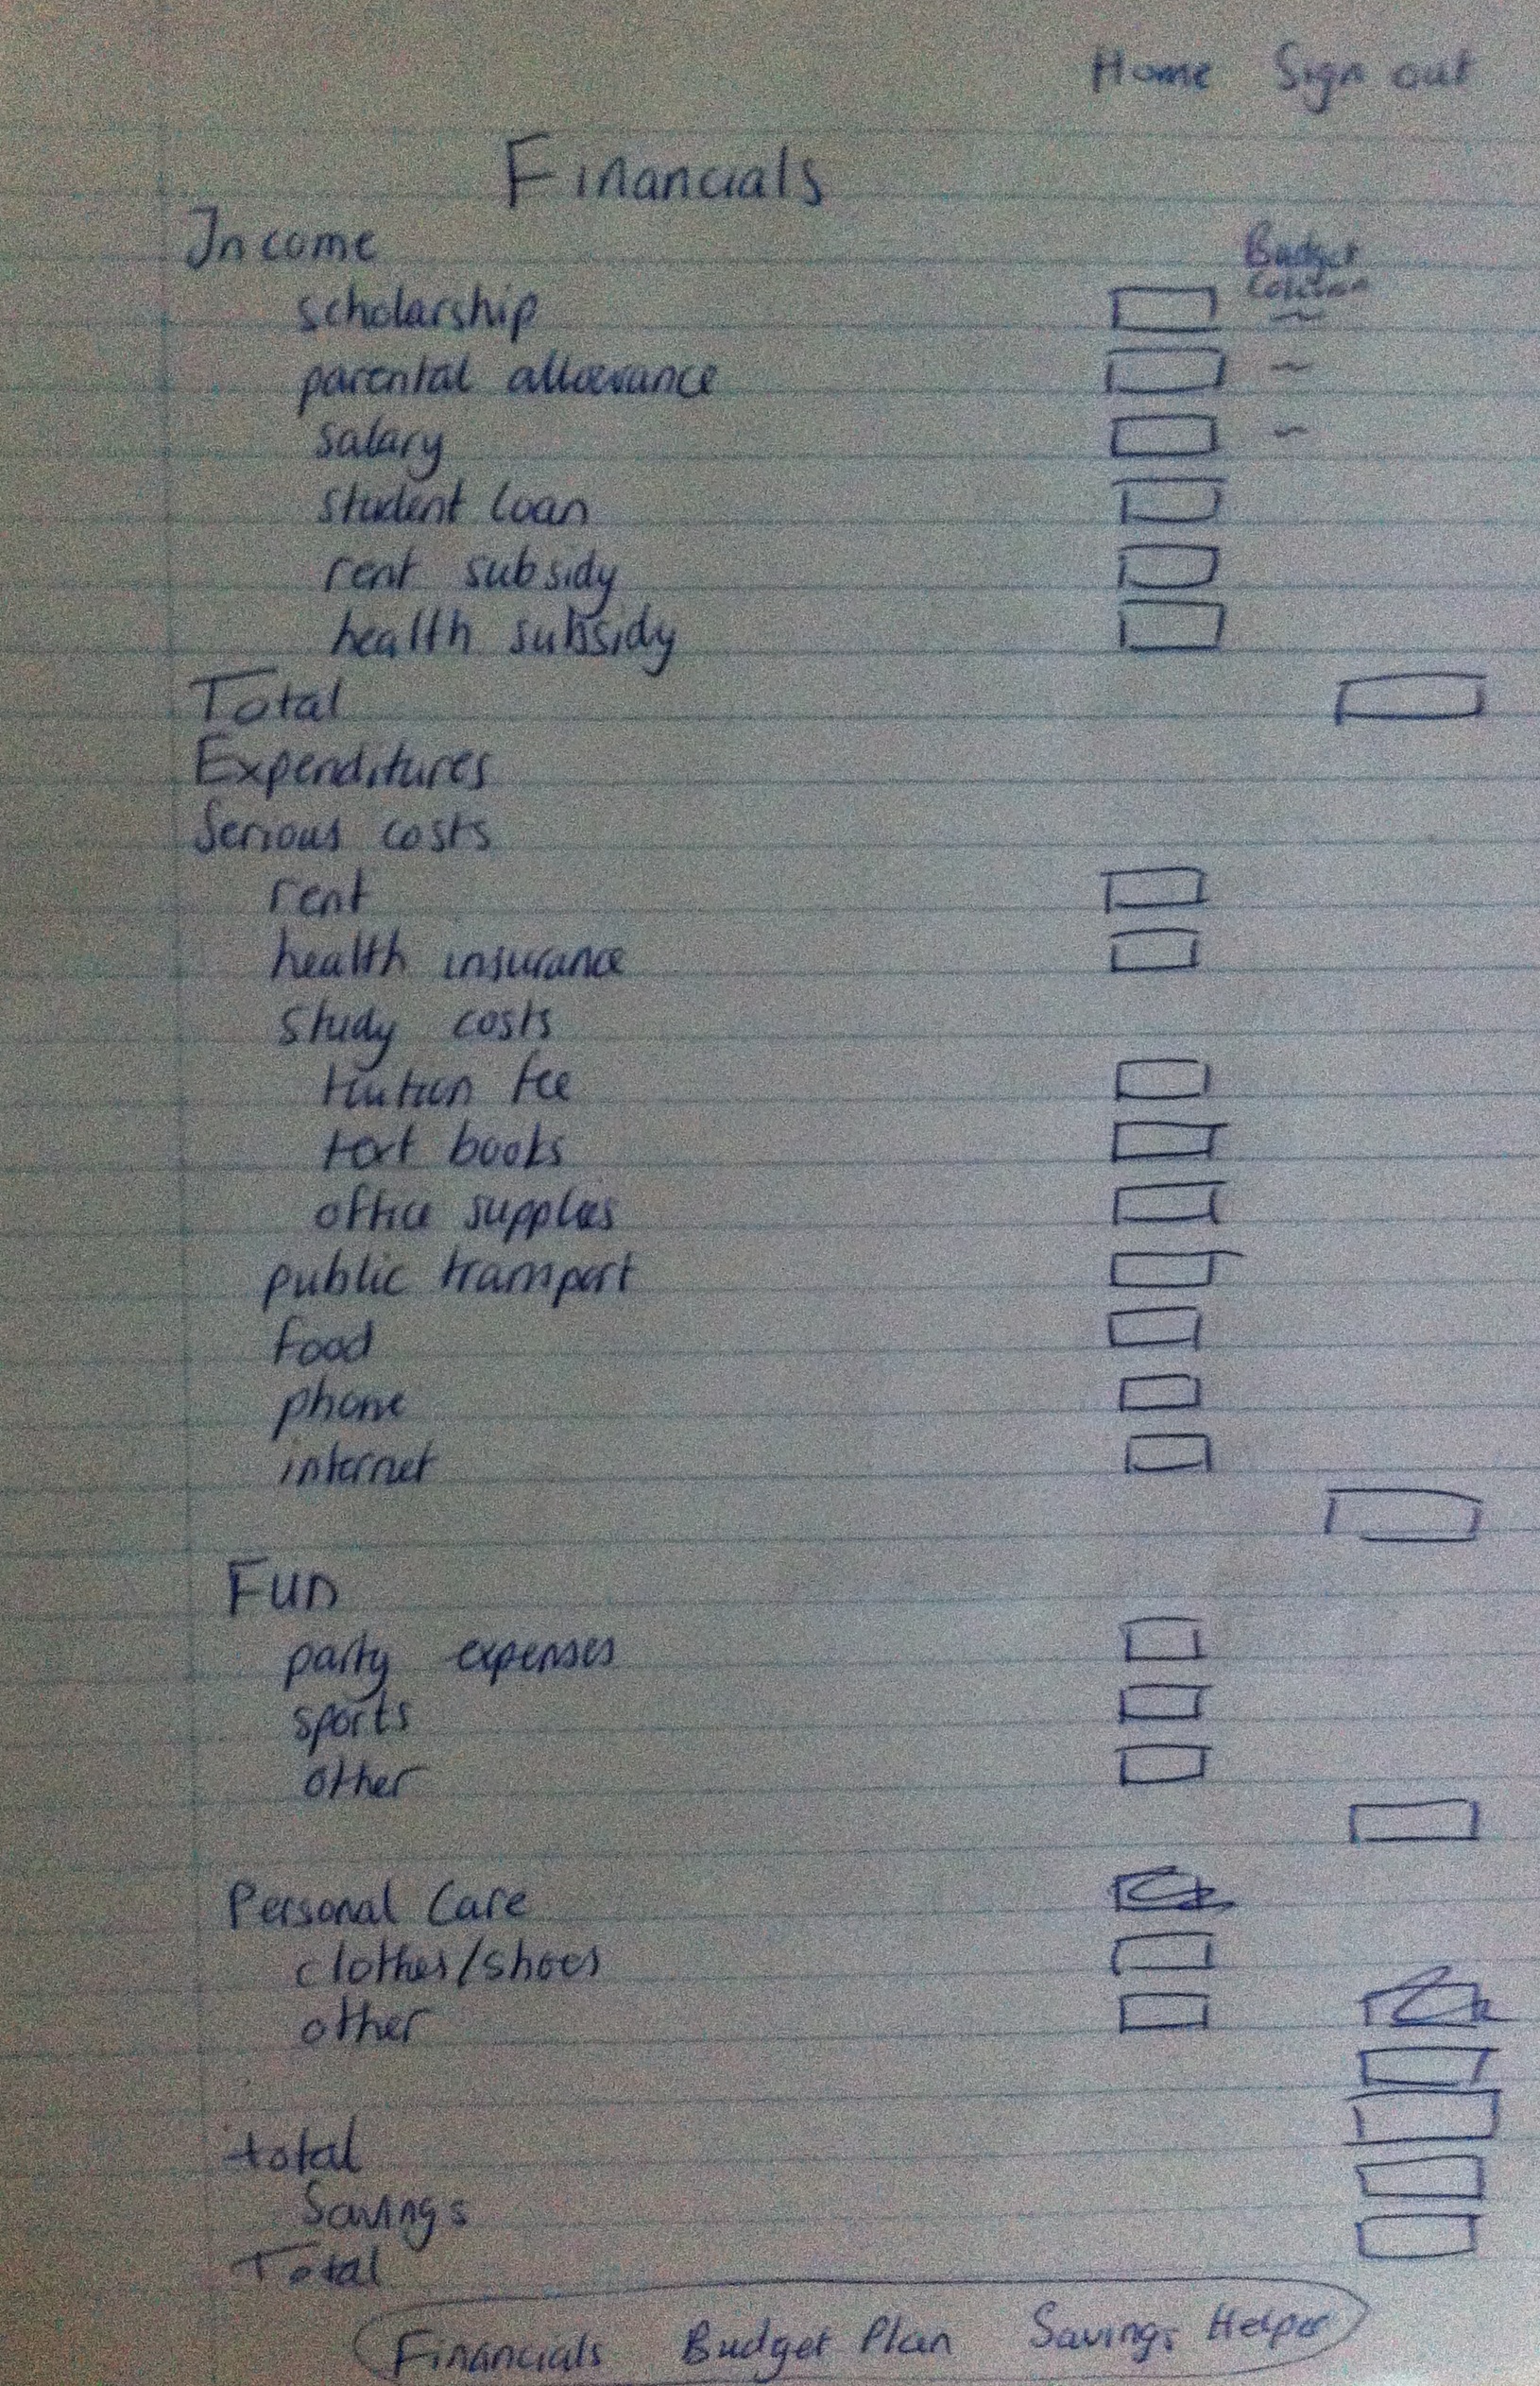 Home Sign out
Financials
Income
Budget
Column
scholarship
parental allowance
salary
student loan
rent subsidy
health subsidy
Total
Expenditures
Serious costs
rent
health insurance
study costs
tuition fee
text books
office supplies
public transport
food
phone
internet
Fun
party expenses
sports
other
Personal Care
clothes/shoes
other
total
Savings
Total
Financials Budget Plan Savings Helper